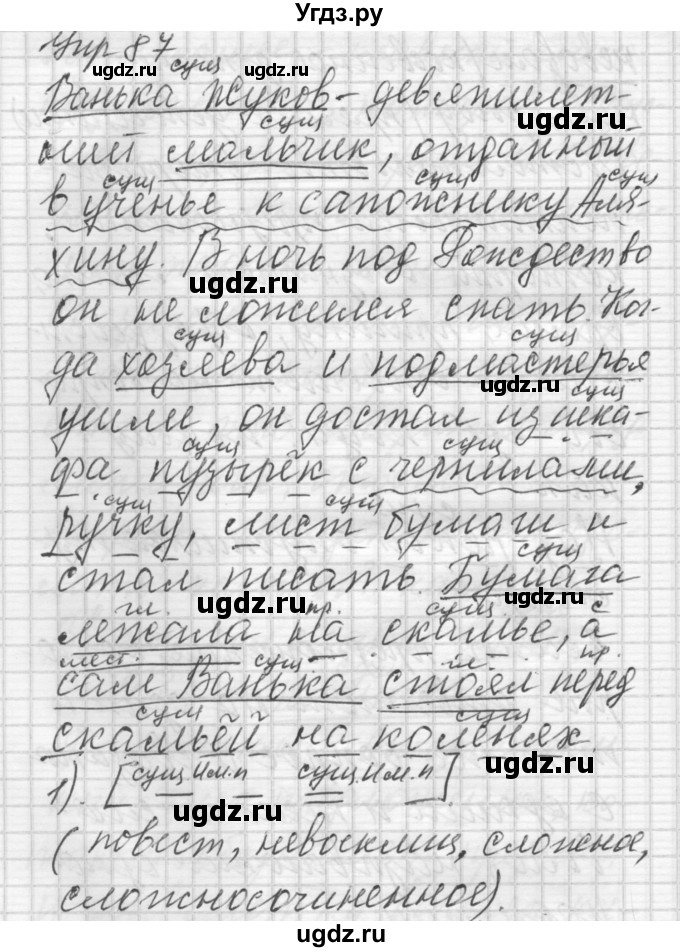 Угдз.ру
Упр 87
сущ
Ванька Жуков - девятилет-
сущ
ний мальчик, отданный
сущ сущ сущ
в ученье к сапожнику Аля-
хину. В ночь под Рождество
он не ложился спать. Ког-
сущ сущ
да хозяева и подмастерья
сущ
ушли, он достал из шка-
сущ сущ
фа пузырёк с чернилами,
сущ сущ
ручку, лист бумаги и
сущ
стал писать. Бумага
гл. пр. сущ с
лежала на скамье, а
мест. сущ гл. пр.
сам Ванька стоял перед
сущ сущ
скамьёй на коленях.
1). [сущ. Им. п — сущ. Им. п].
(повест, невосклиц, сложное,
сложносочиненное).
ugdz.ru
ugdz.ru
ugdz.ru
ugdz.ru
ugdz.ru
ugdz.ru
ugdz.ru
ugdz.ru
ugdz.ru
ugdz.ru
ugdz.ru
ugdz.ru
ugdz.ru